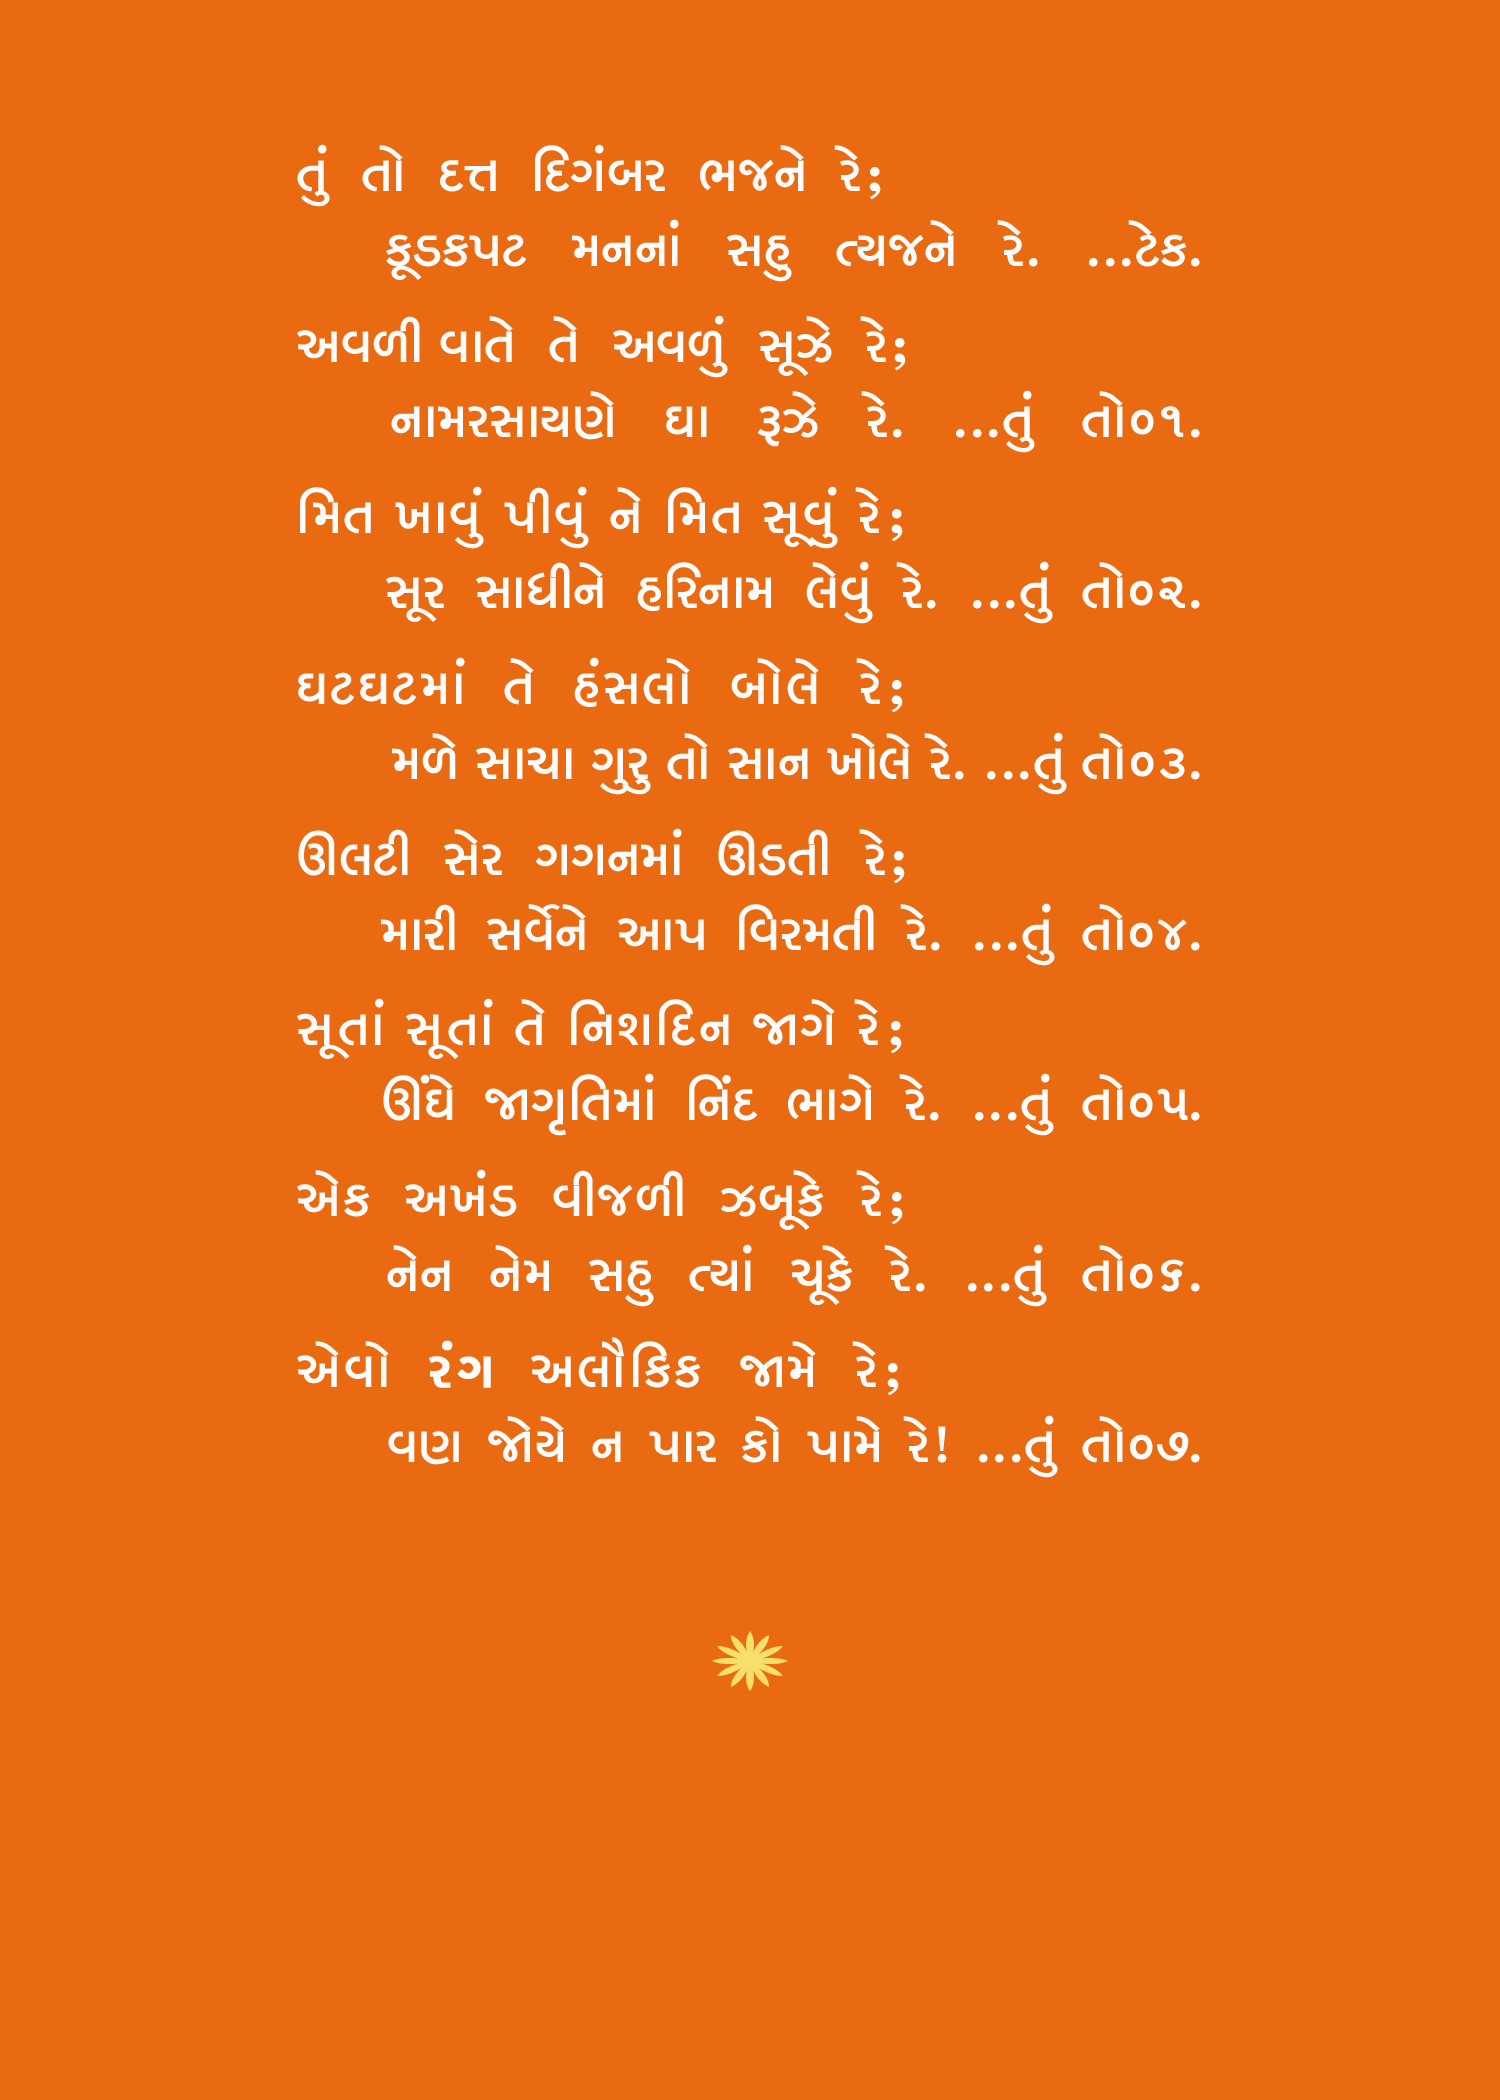 તું તો દત્ત દિગંબર ભજને રે;
કૂડકપટ મનનાં સહુ ત્યજને રે. ...ટેક.
અવળી વાતે તે અવળું સૂઝે રે;
નામરસાયણે ઘા રૂઝે રે. ...તું તો૦૧.
મિત ખાવું પીવું ને મિત સૂવું રે;
સૂર સાધીને હરિનામ લેવું રે. ...તું તો૦૨.
ઘટઘટમાં તે હંસલો બોલે રે;
મળે સાચા ગુરુ તો સાન ખોલે રે. ...તું તો૦૩.
ઊલટી સેર ગગનમાં ઊડતી રે;
મારી સર્વેને આપ વિરમતી રે. ...તું તો૦૪.
સૂતાં સૂતાં તે નિશદિન જાગે રે;
ઊંઘે જાગૃતિમાં નિંદ ભાગે રે. ...તું તો૦૫.
એક અખંડ વીજળી ઝબૂકે રે;
નેન નેમ સહુ ત્યાં ચૂકે રે. ...તું તો૦૬.
એવો રંગ અલૌકિક જામે રે;
વણ જોયે ન પાર કો પામે રે! ...તું તો૦૭.